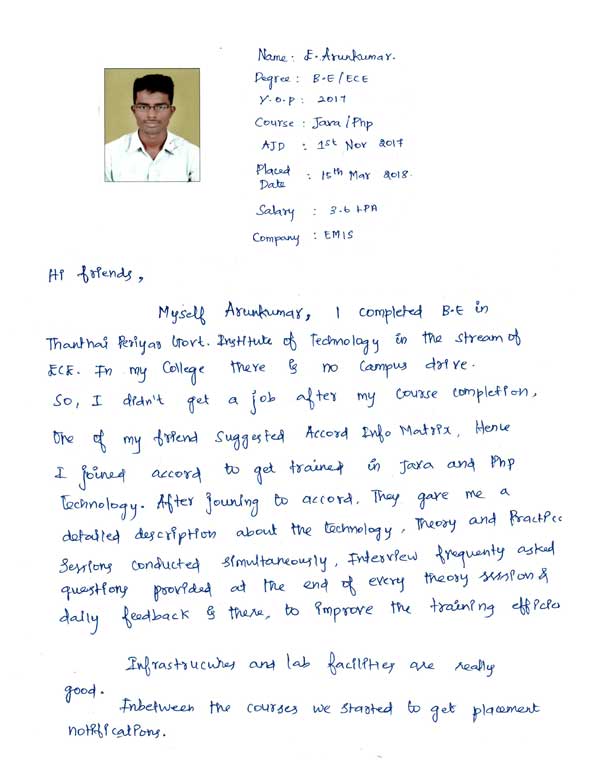 Name : E. Arunkumar.
Degree : B.E / ECE
Y.O.P : 2017
Course : Java / Php
AJD : 1st Nov 2017
Placed Date : 15th Mar 2018.
Salary : 3.6 LPA
Company : EMIS
Hi friends,
Myself Arunkumar, I completed B.E in
Thanthai Periyar Govt. Institute of Technology in the stream of
ECE. In my College there is no Campus drive.
So, I didn't get a job after my course completion,
One of my friend Suggested Accord Info Matrix, Hence
I joined accord to get trained in Java and Php
Technology. After jouning to accord, They gave me a
detailed description about the technology, Theory and Practice
Sessions conducted simultaneously, Interview frequenty asked
questions provided at the end of every theory session &
daily feedback is there, to improve the training efficie
Infrastrucures and lab facilities are really
good.
Inbetween the courses we started to get placement
notifications.